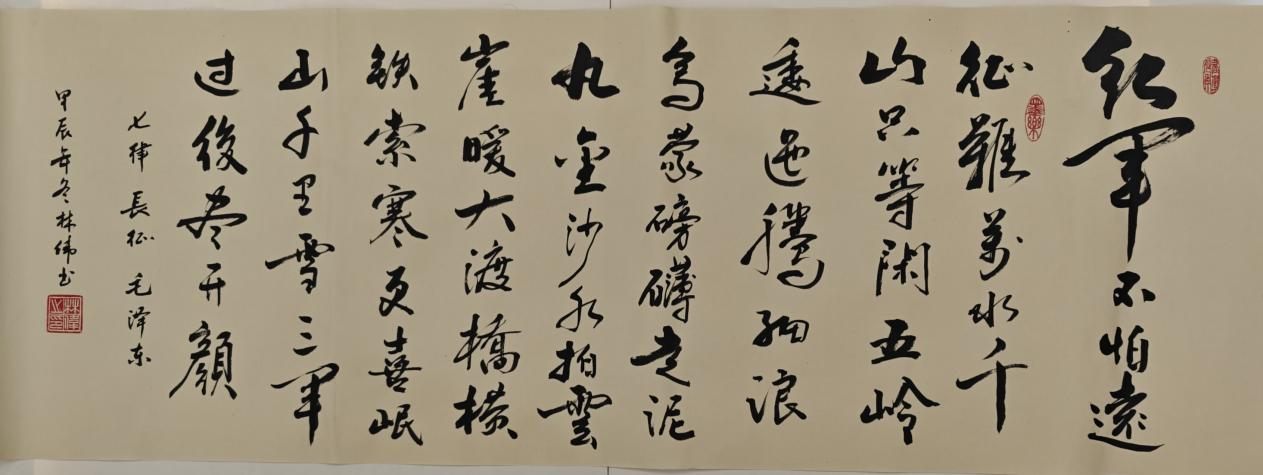 红军不怕遠
征難萬水千
山只等闲五岭
逶迤騰細浪
烏蒙磅礴走泥
丸金沙水拍雲
崖暖大渡橋横
鉄索寒更喜岷
山千里雪三軍
过後尽开顔
七律長征毛泽东
甲辰年冬林伟书